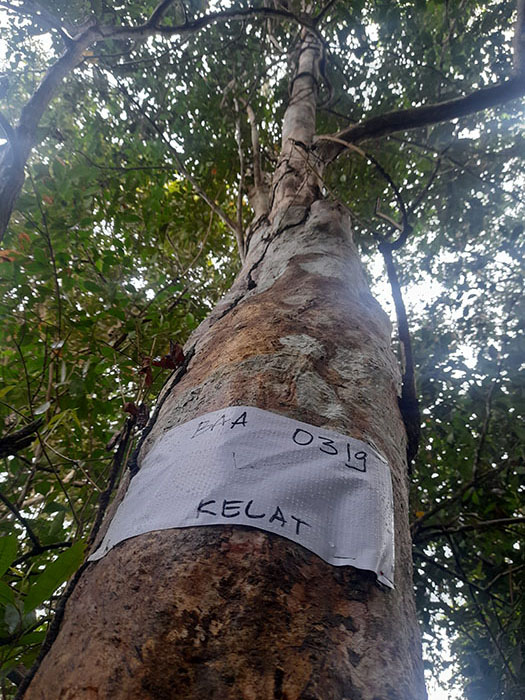 BAA 0319
KELAT